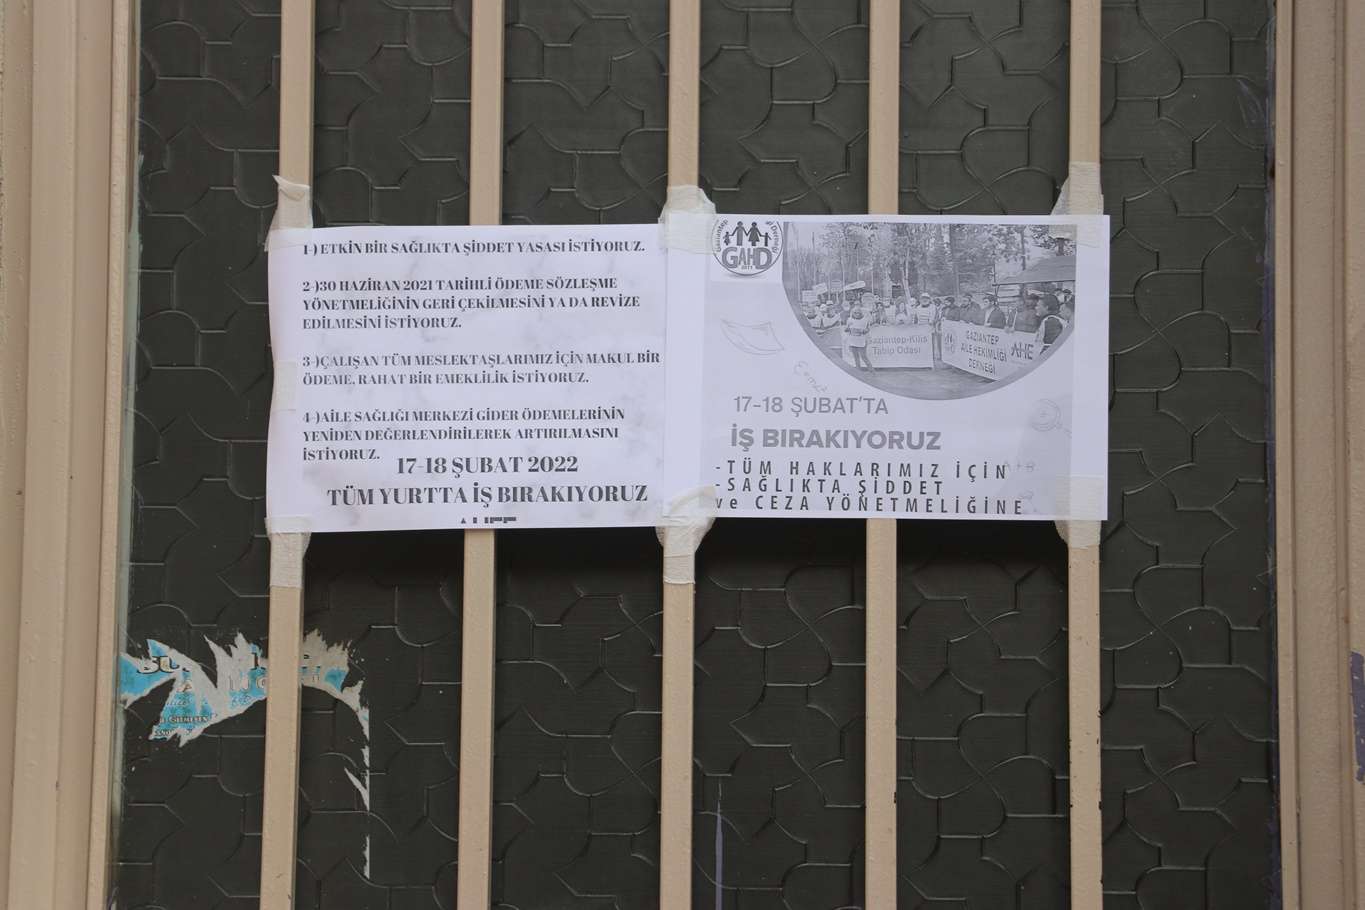 1-) ETKİN BİR SAĞLIKTA ŞİDDET YASASI İSTİYORUZ.
2-)30 HAZİRAN 2021 TARİHLİ ÖDEME SÖZLEŞME
YÖNETMELİĞİNİN GERİ ÇEKİLMESİNİ YA DA REVİZE
EDİLMESİNİ İSTİYORUZ.
3-)ÇALIŞAN TÜM MESLEKTAŞLARIMIZ İÇİN MAKUL BİR
ÖDEME, RAHAT BİR EMEKLİLİK İSTİYORUZ.
4-)AİLE SAĞLIĞI MERKEZİ GİDER ÖDEMELERİNİN
YENİDEN DEĞERLENDİRİLEREK ARTIRILMASINI
İSTİYORUZ.
17-18 ŞUBAT 2022
TÜM YURTTA İŞ BIRAKIYORUZ
Gaziantep
Derneği
GAHD
Gaziantep-Kilis
Tabip Odası
GAZİANTEP
AİLE HEKİMLİĞİ
DERNEĞİ
AHE
17-18 ŞUBAT'TA
İŞ BIRAKIYORUZ
-TÜM HAKLARIMIZ İÇİN
-SAĞLIKTA ŞİDDET
ve CEZA YÖNETMELİĞİNE